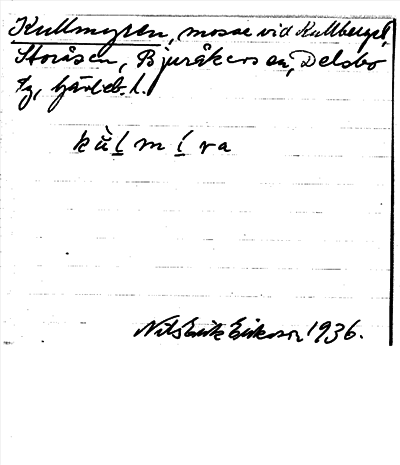 Kullmyren, mosse vid Kullberget,
Storåsen, Bjuråkers sn, Delsbo
tg, Gävleb. l.
kùl̲ m l̲ ra
Nils Erik Erikson 1936.